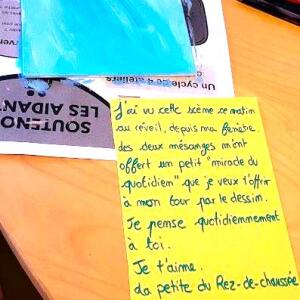 Un cycle de 4 ateliers
SOUTENO
LES AIDAN
J'ai vu cette scène ce matin
au réveil, depuis ma fenêtre
des deux mésanges m'ont
offert un petit "miracle du
quotidien" que je veux t'offrir
à mon tour par le dessin.
Je pense quotidiennement
à toi.
Je t'aime.
La petite du Rez-de-chaussée